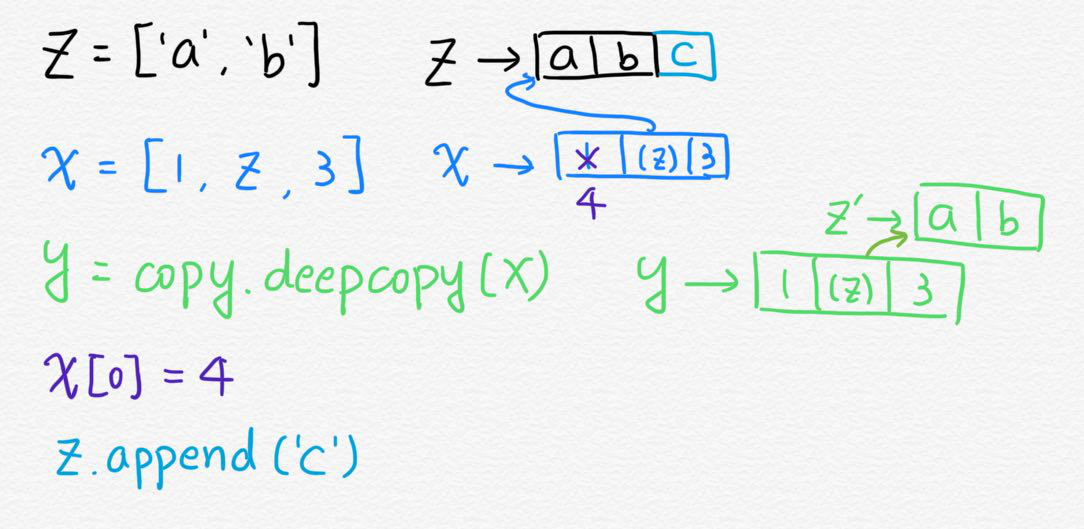 z = ['a', 'b'] z → a b c
x = [1, z, 3] x → 1 (z) 3
4
z' → a b
y = copy.deepcopy(x) y → 1 (z) 3
x[0] = 4
z.append('c')